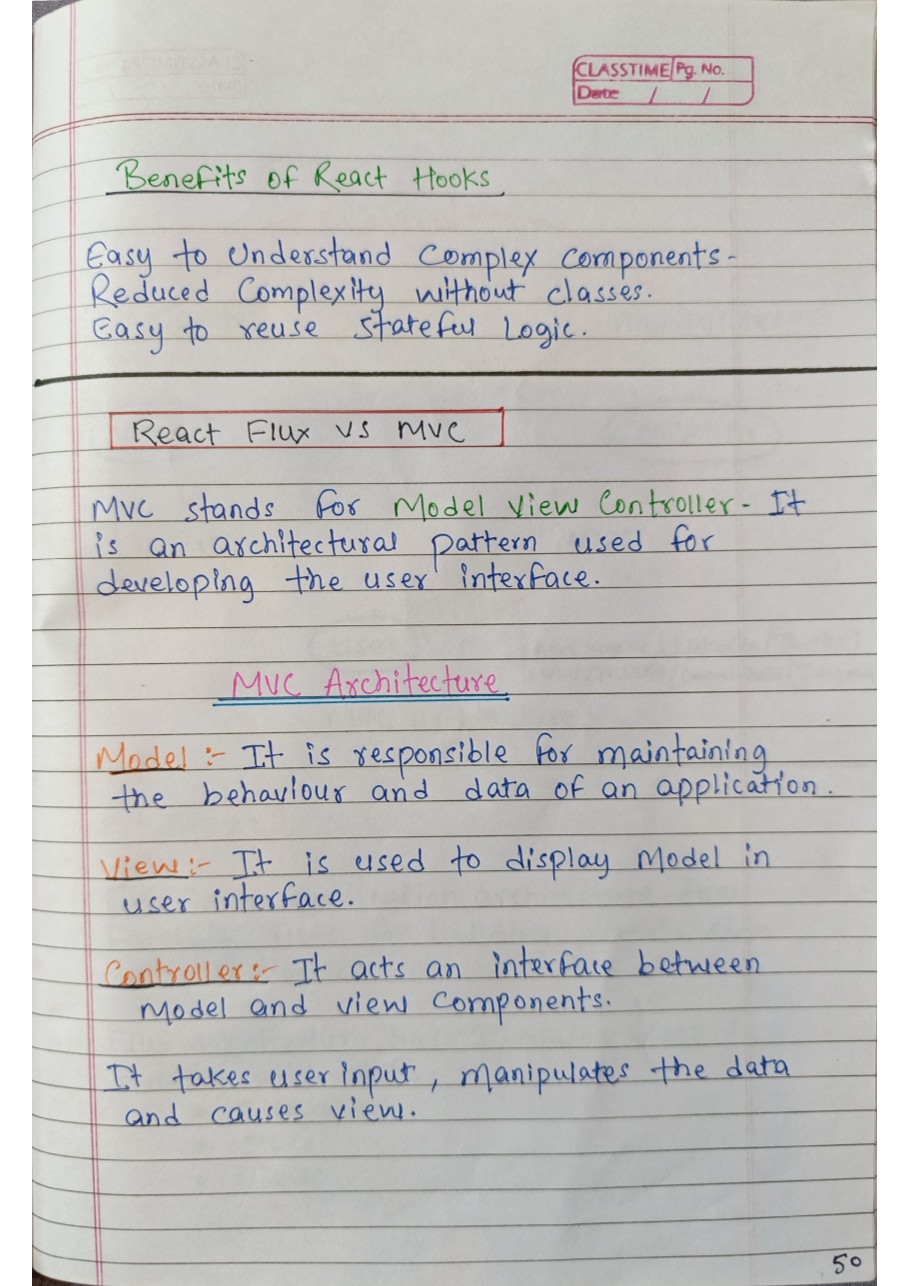 CLASSTIME Pg. No.
Date / /
Benefits of React Hooks
Easy to Understand Complex Components-
Reduced Complexity without classes.
Easy to reuse Stateful Logic.
React Flux vs MVC
MVC stands for Model View Controller- It
is an architectural pattern used for
developing the user interface.
MVC Architecture
Model :- It is responsible for maintaining
the behaviour and data of an application.
View :- It is used to display Model in
user interface.
Controller :- It acts an interface between
Model and view Components.
It takes user input, manipulates the data
and causes view.
50